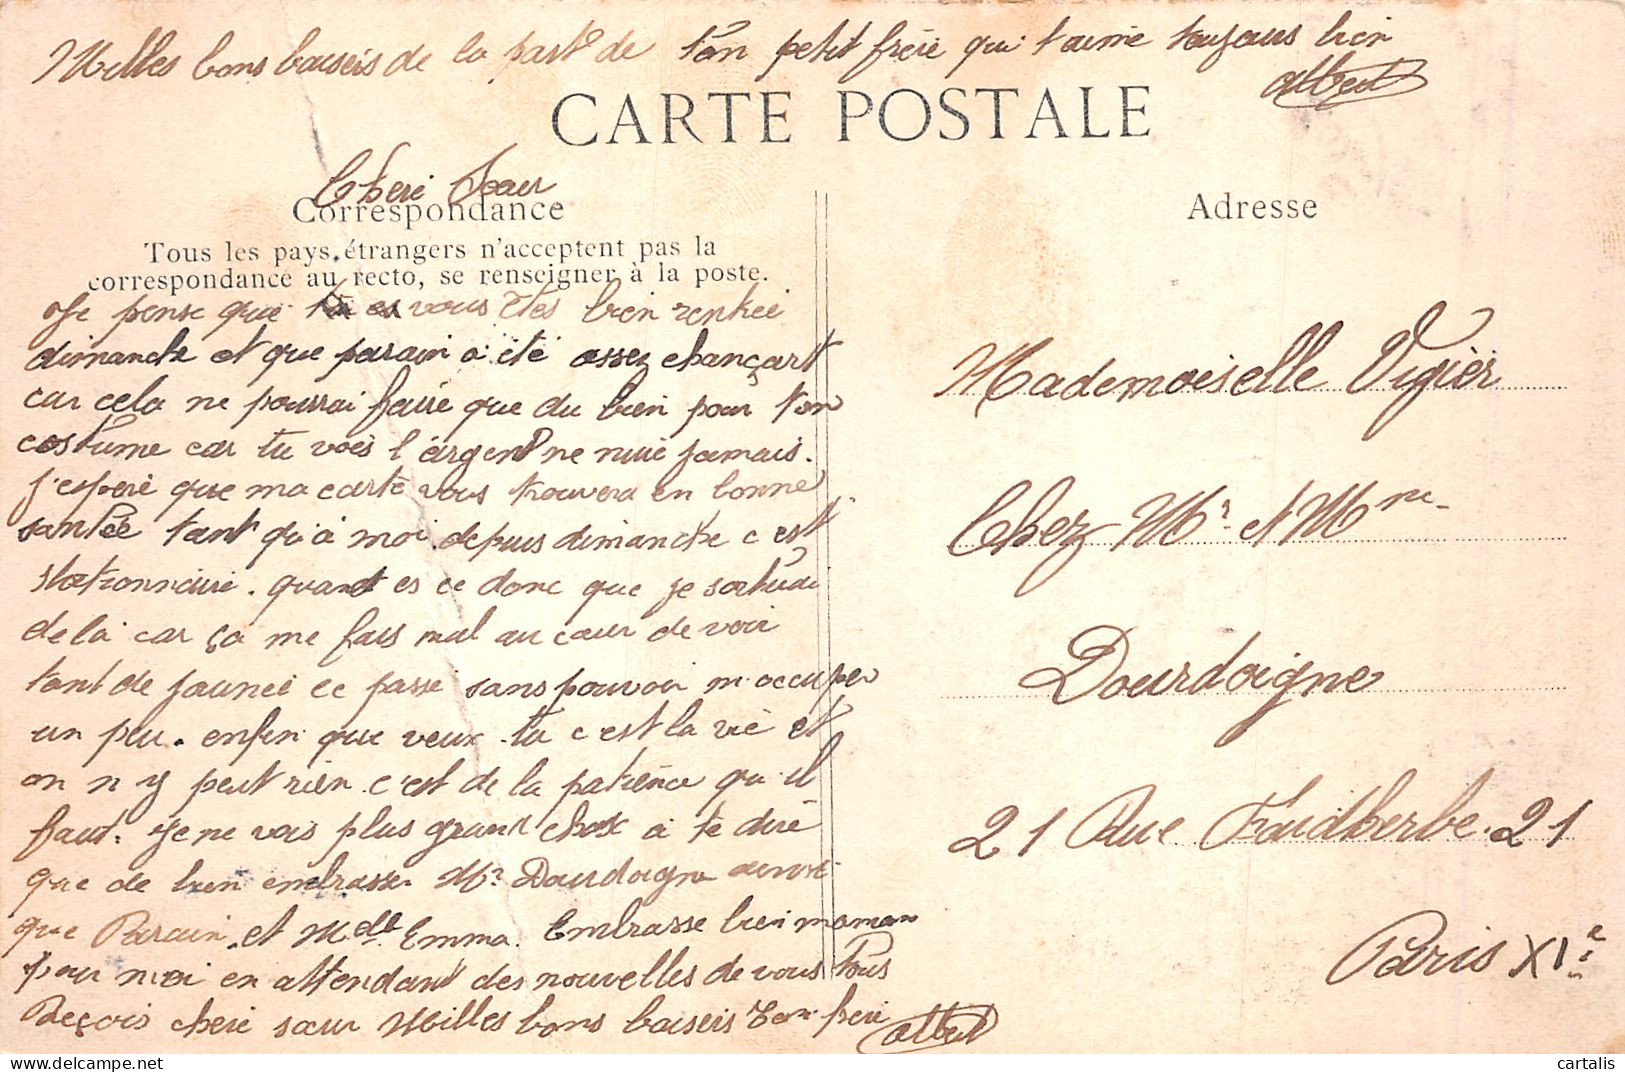 Milles bons baisers de la part de ton petit frère qui t'aime toujours bien
Albert
CARTE POSTALE
Cheré Soeur
Correspondance
Adresse
Tous les pays étrangers n'acceptent pas la
correspondance au recto, se renseigner à la poste.
Je pense que tu es vous êtes bien rentreé
dimanche et que parain a été assez chançart
car cela ne pourrai faire que du bien pour ton
costume car tu vois l'argent ne nuie jamais.
J'esperé que ma carte vous trouvera en bonne
santée tant qu'à moi depuis dimanche c'est
stationnairé. quand es ce donc que je sortirai
de là car ça me fais mal au coeur de voir
tant de jouneé ce passé sans pouvoir m'occuper
un peu. enfin que veux tu c'est la vie et
on n'y peut rien c'est de la patience qu'il
faut. Je ne vois plus grand chose a te diré
que de bien embrasser Mr Dourdoigne ainsi
que Parain et Mdlle Emma. Embrasse bien maman
pour moi en attendant des nouvelles de vous tous
Reçois cheré soeur Milles bons baisers Ton freré
Albert
Mademoiselle Vigier
Chez Mr et Mme
Dourdoigne
21 Rue Faidherbe 21
Paris XIe
cartalis